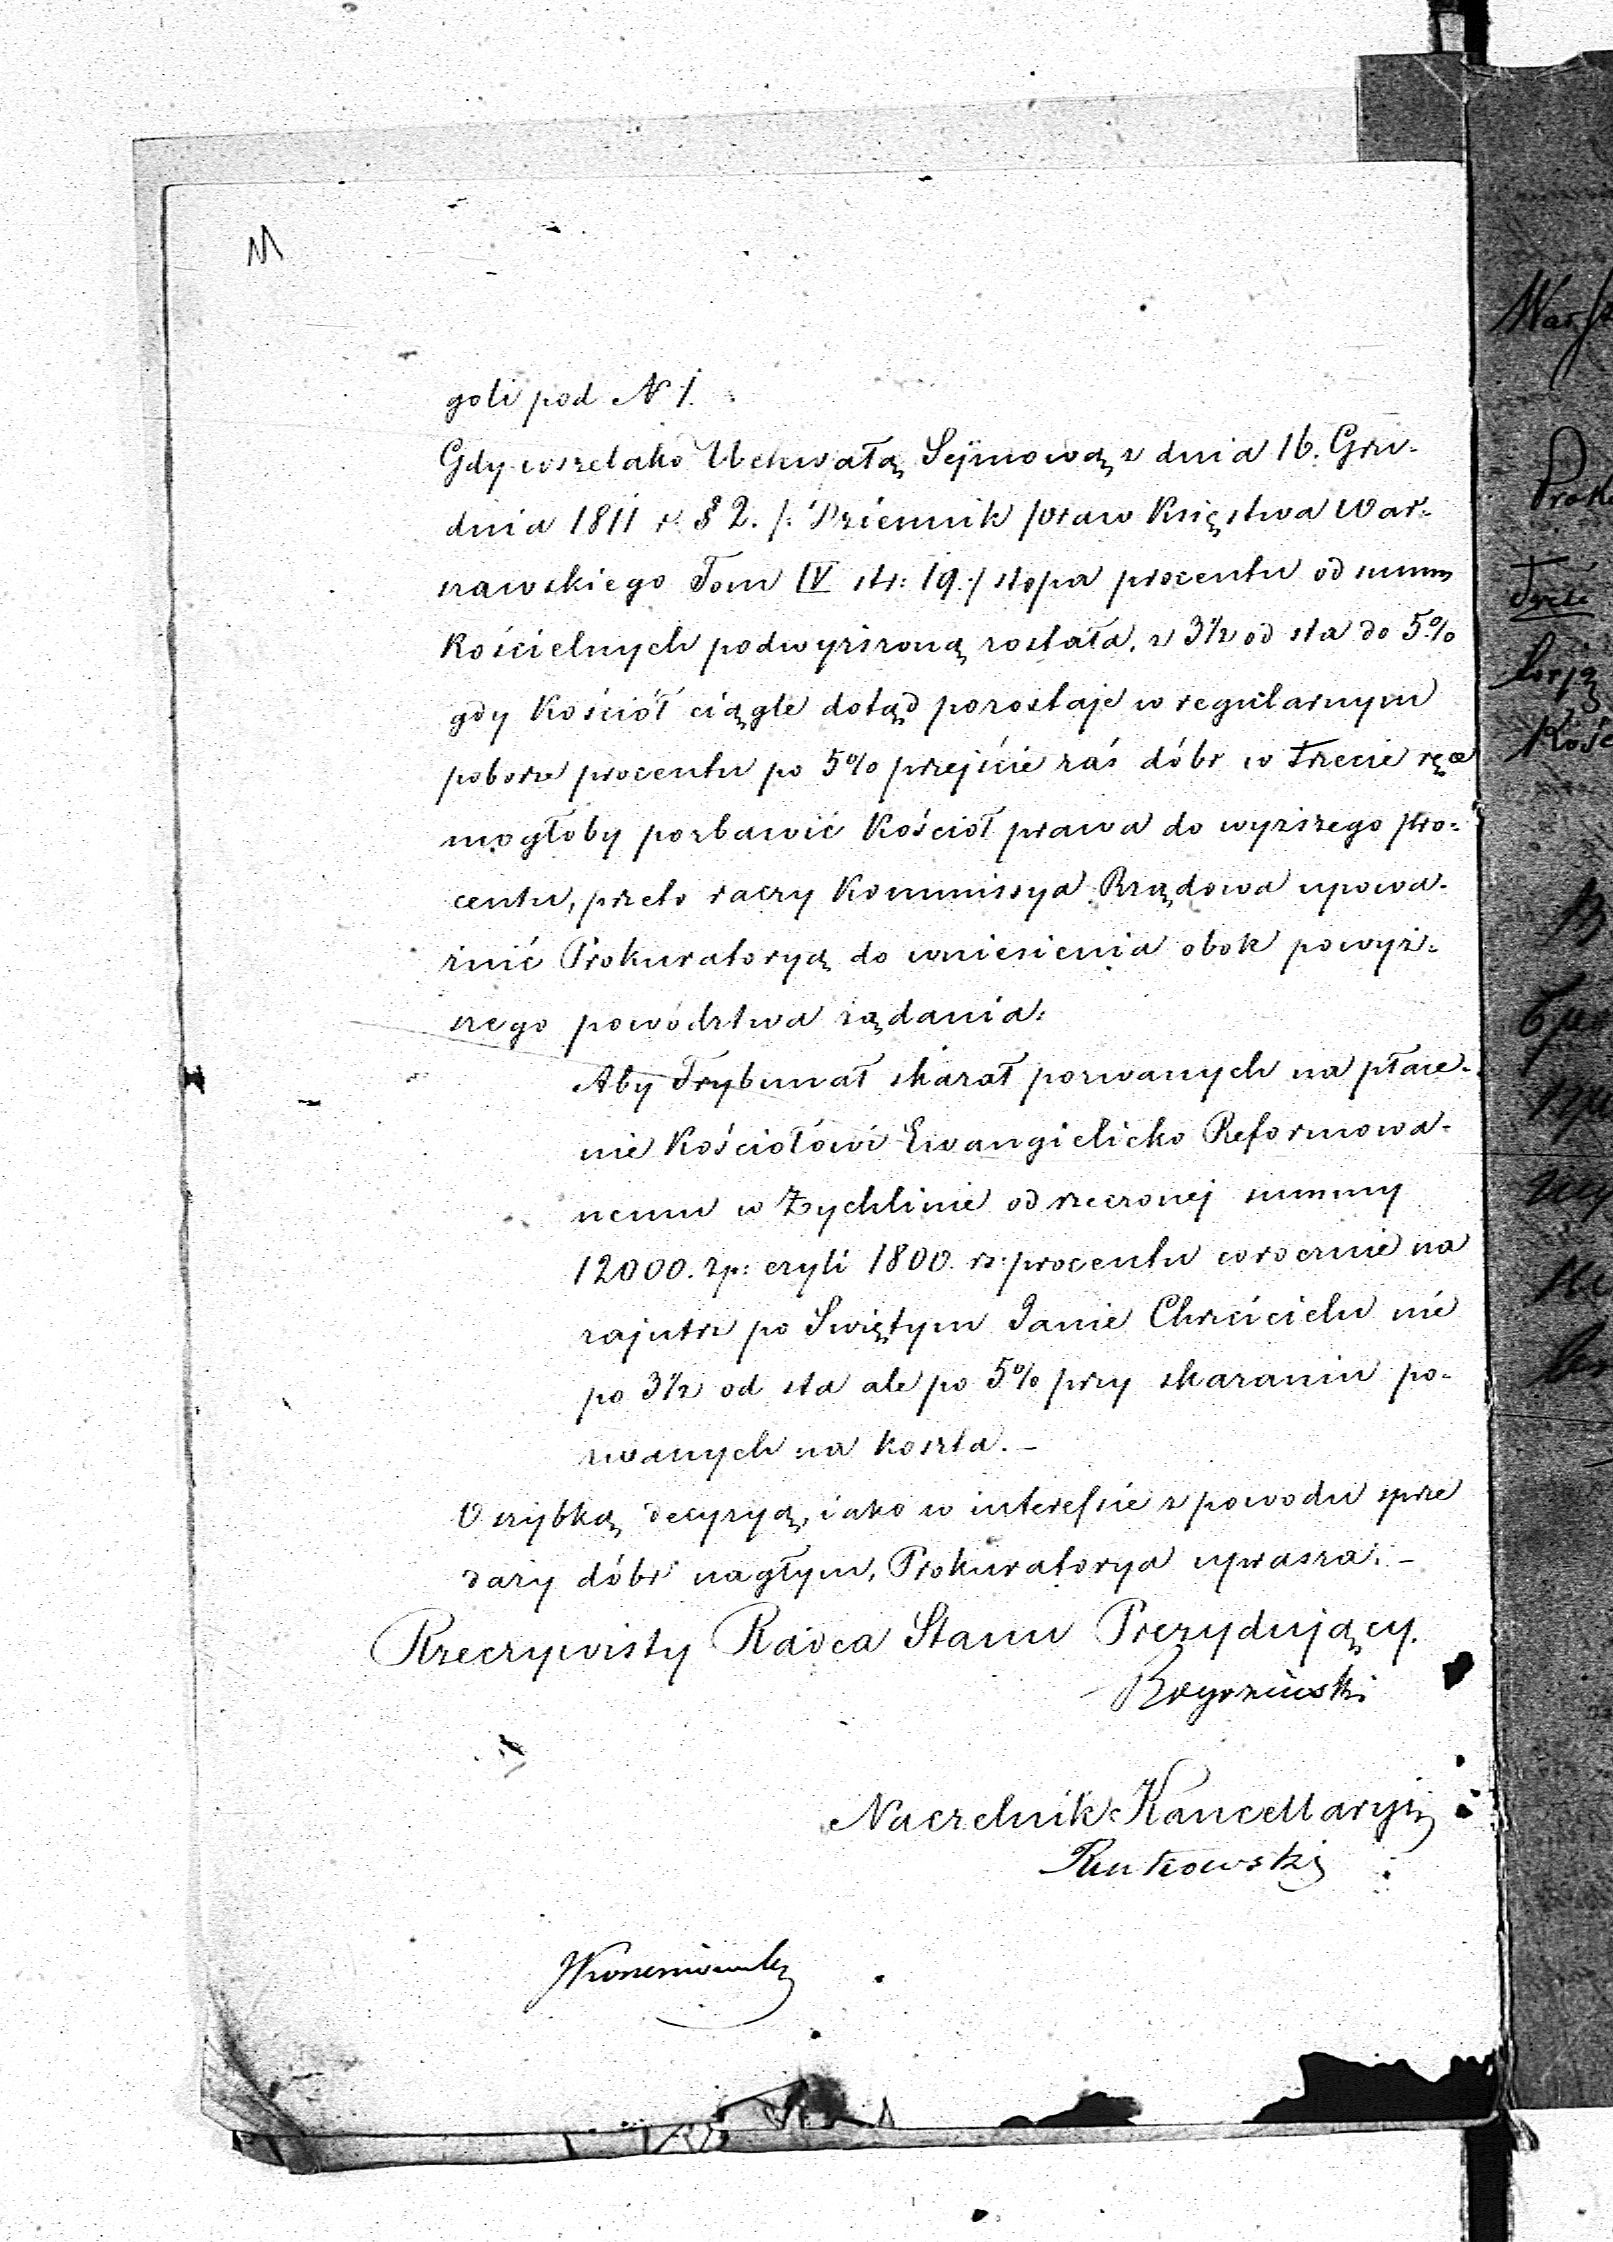 goli pod N 1.
Gdy wszelako Uchwałą Sejmową z dnia 16. Gru-
dnia 1811 r. § 2. /: Dziennik praw Księstwa War-
szawskiego Tom IV str: 19 :/ stopa procentu od summ
Kościelnych podwyższoną została, z 3½ od sta do 5%
gdy Kościół ciągle dotąd pozostaje w regularnym
poborze procentu po 5% przejście zaś dóbr w trzecie ręce
mogłoby pozbawić Kościół prawa do wyższego pro-
centu, przeto raczy Kommissya Rządowa upowa-
żnić Prokuratoryą do wniesienia obok powyż-
szego powództwa żądania:
Aby Trybunał skazał pozwanych na płace-
nie Kościołowi Ewangielicko Reformowa-
nemu w Żychlinie od rzeczonej summy
12000. zp: czyli 1800. rs: procentu corocznie na
zajutrz po Świętym Janie Chrzcicielu nie
po 3½ od sta ale po 5% przy skazaniu po-
zwanych na koszta. –
O szybką decyzyą, iako w interessie z powodu sprze
daży dóbr nagłym, Prokuratorya uprasza. –
Rzeczywisty Radca Stanu Prezydujący.
Naczelnik Kancellaryi
Rutkowski
Warsz
Proku
Treść
Kośc